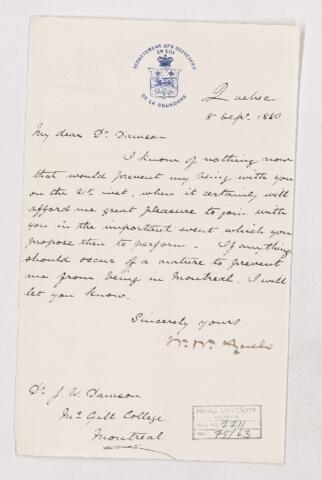 DEPARTEMENT DES OFFICIERS
EN LOI
DE LA COURONNE
Quebec
8 Sept. 1880
My dear Dr. Dawson
I know of nothing now
that would prevent my being with you
on the 21st inst, when it certainly will
afford me great pleasure to join with
you in the important event which you
propose then to perform. If anything
should occur of a nature to prevent
me from being in Montreal, I will
let you know.
Sincerely yours
Dr J. W. Dawson
McGill College
Montreal
McGILL UNIVERSITY
ACC. NO. 2211
REF. 75/63